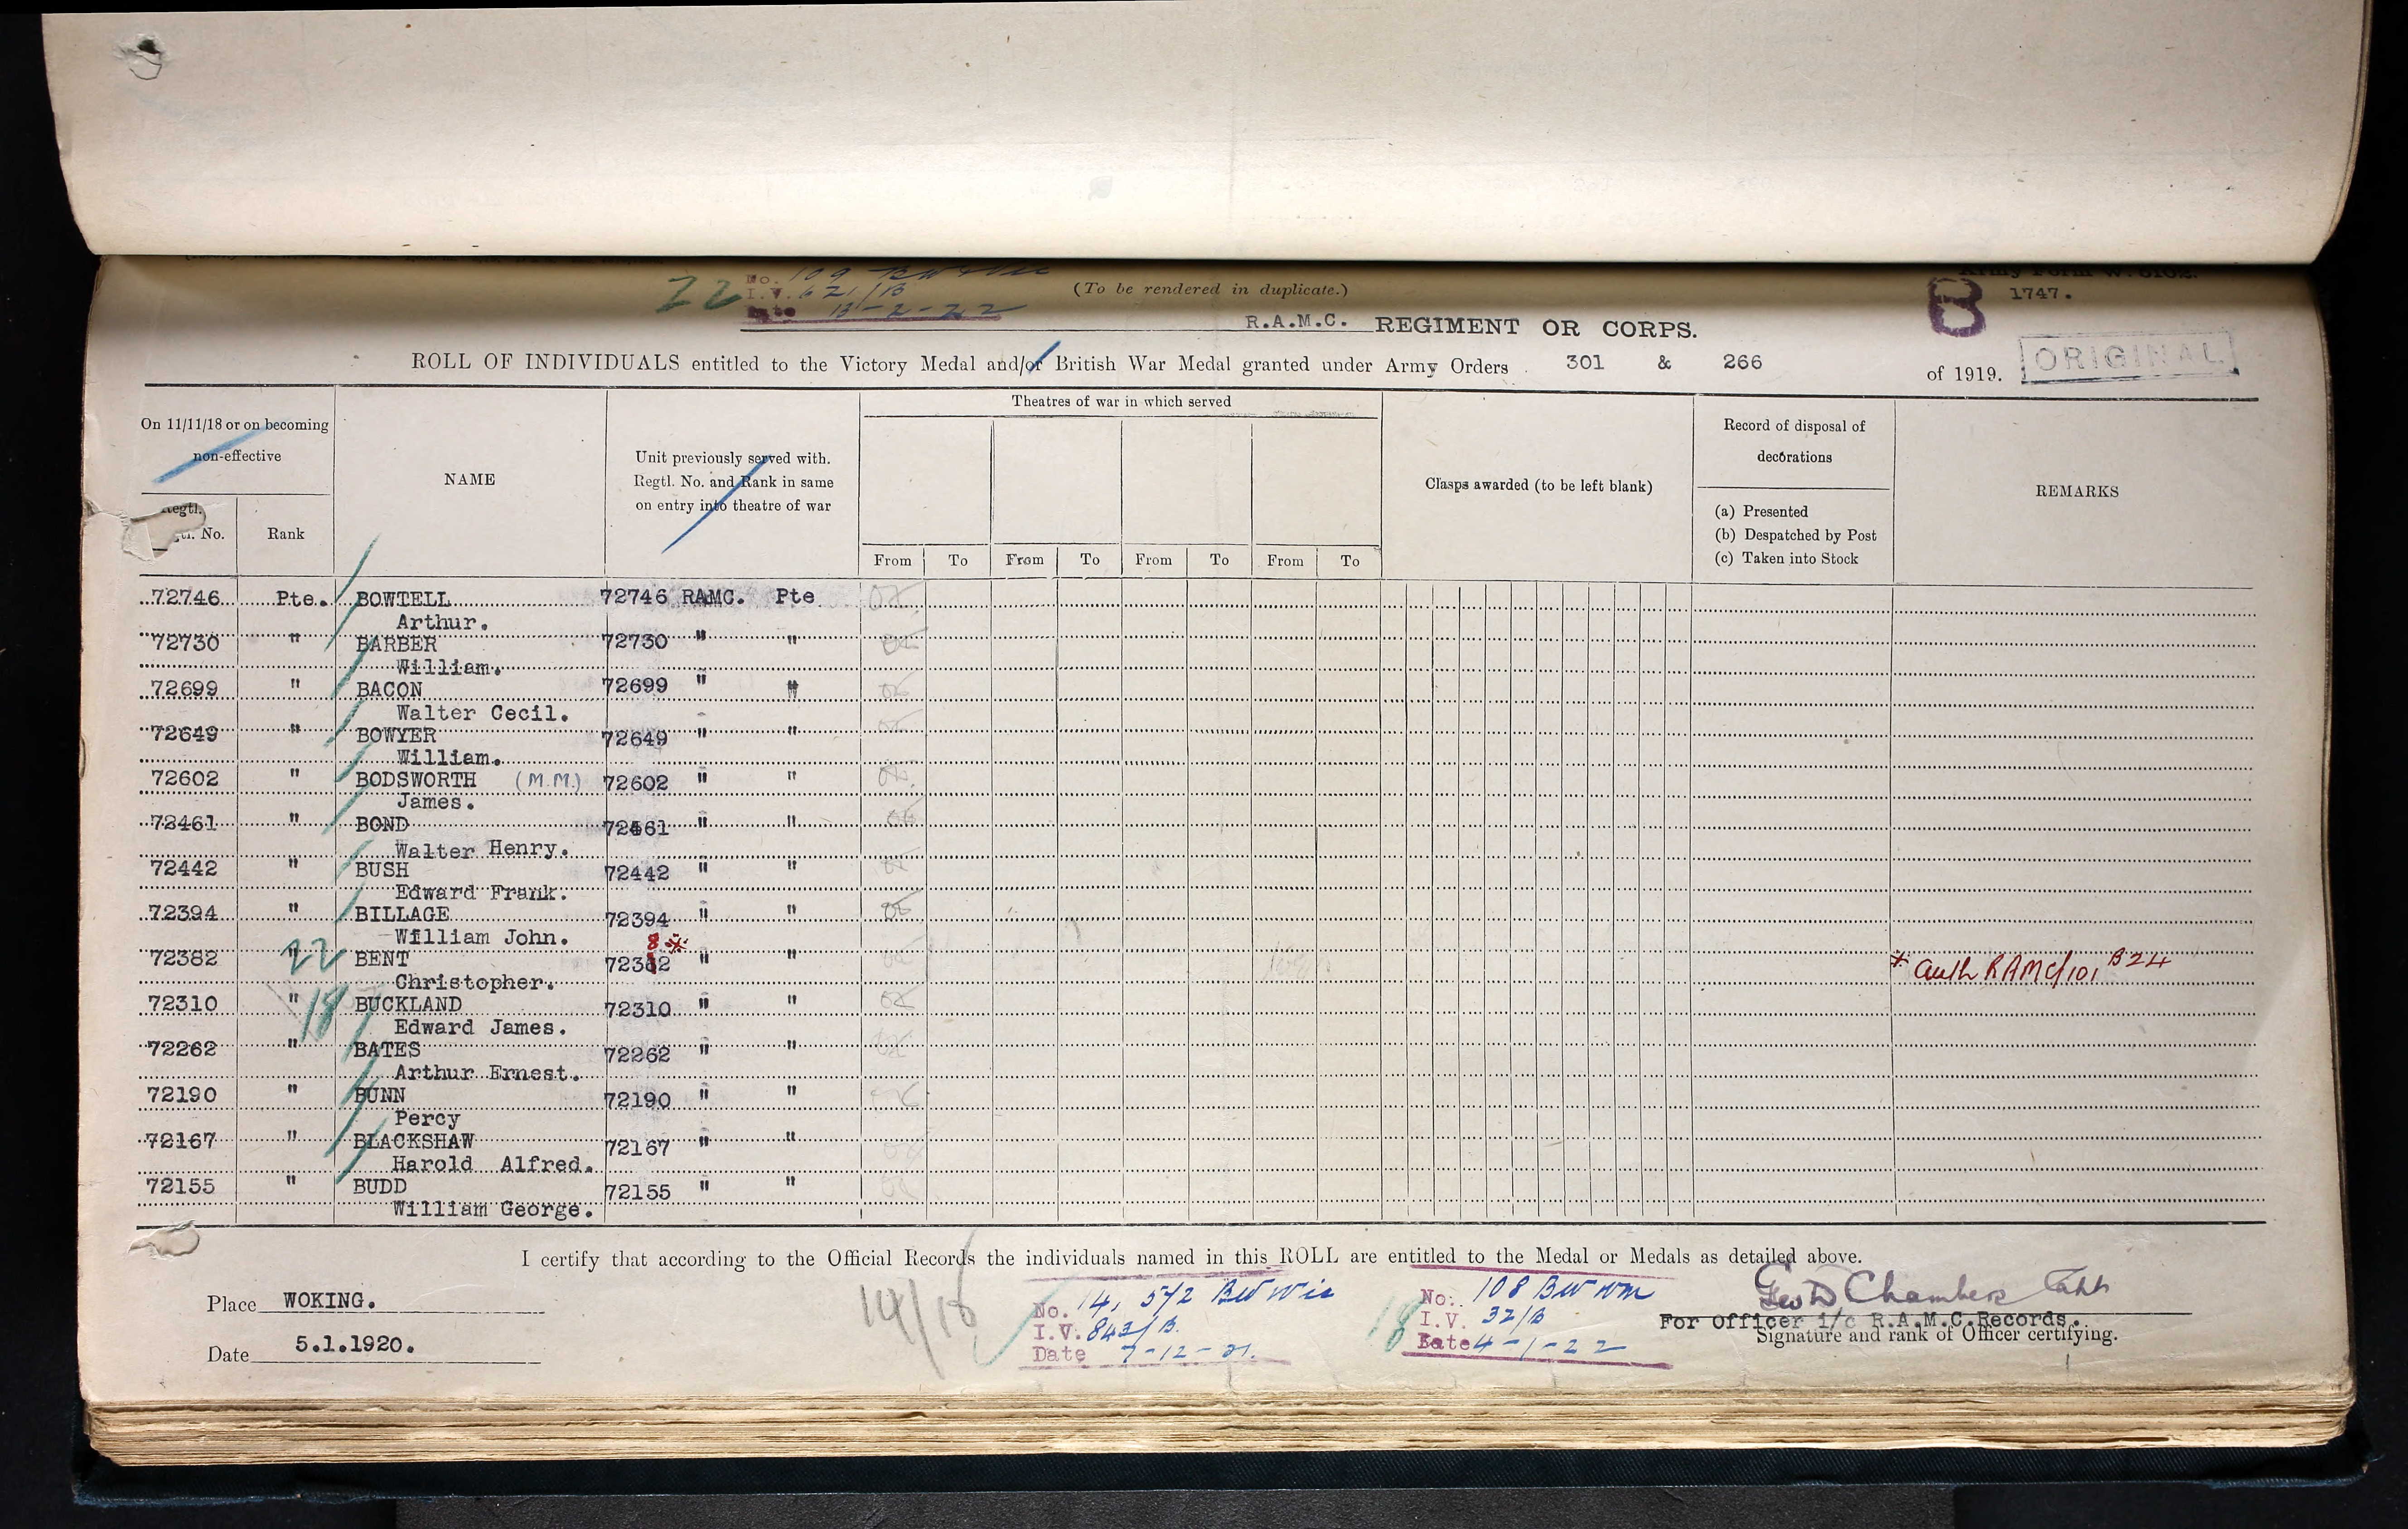 22
No. 109
I.V. 621/B
Date 13-2-22
(To be rendered in duplicate.)
Army Form W. 5102.
B
1747.
R.A.M.C. REGIMENT OR CORPS.
ROLL OF INDIVIDUALS entitled to the Victory Medal and/or British War Medal granted under Army Orders 301 & 266 of 1919.
ORIGINAL
On 11/11/18 or on becoming
non-effective
Regtl. No.
Rank
NAME
Unit previously served with.
Regtl. No. and Rank in same
on entry into theatre of war
Theatres of war in which served
From To From To From To From To
Clasps awarded (to be left blank)
Record of disposal of
decorations
(a) Presented
(b) Despatched by Post
(c) Taken into Stock
REMARKS
72746 Pte. BOWTELL 72746 RAMC. Pte
Arthur.
72730 " BARBER 72730 " "
William.
72699 " BACON 72699 " "
Walter Cecil.
72649 " BOWYER 72649 " "
William.
72602 " BODSWORTH (M.M.) 72602 " "
James.
72461 " BOND 72461 " "
Walter Henry.
72442 " BUSH 72442 " "
Edward Frank.
72394 " BILLAGE 72394 " "
William John.
8 *
72382 " 22 BENT 72382 " " * auth RAMC/101 B24
Christopher.
72310 " 18 BUCKLAND 72310 " "
Edward James.
72262 " BATES 72262 " "
Arthur Ernest.
72190 " BUNN 72190 " "
Percy
72167 " BLACKSHAW 72167 " "
Harold Alfred.
72155 " BUDD 72155 " "
William George.
I certify that according to the Official Records the individuals named in this ROLL are entitled to the Medal or Medals as detailed above.
Place WOKING.
Date 5.1.1920.
No. 14, 572
I.V. 843/B.
Date 7-12-21.
18
No. 108
I.V. 32/B
Date 4-1-22
Geo D Chambers
For Officer i/c R.A.M.C.Records.
Signature and rank of Officer certifying.